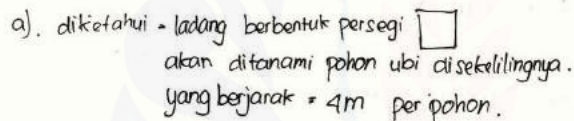 a). diketahui - ladang berbentuk persegi
akan ditanami pohon ubi disekelilingnya.
yang berjarak = 4m per pohon.